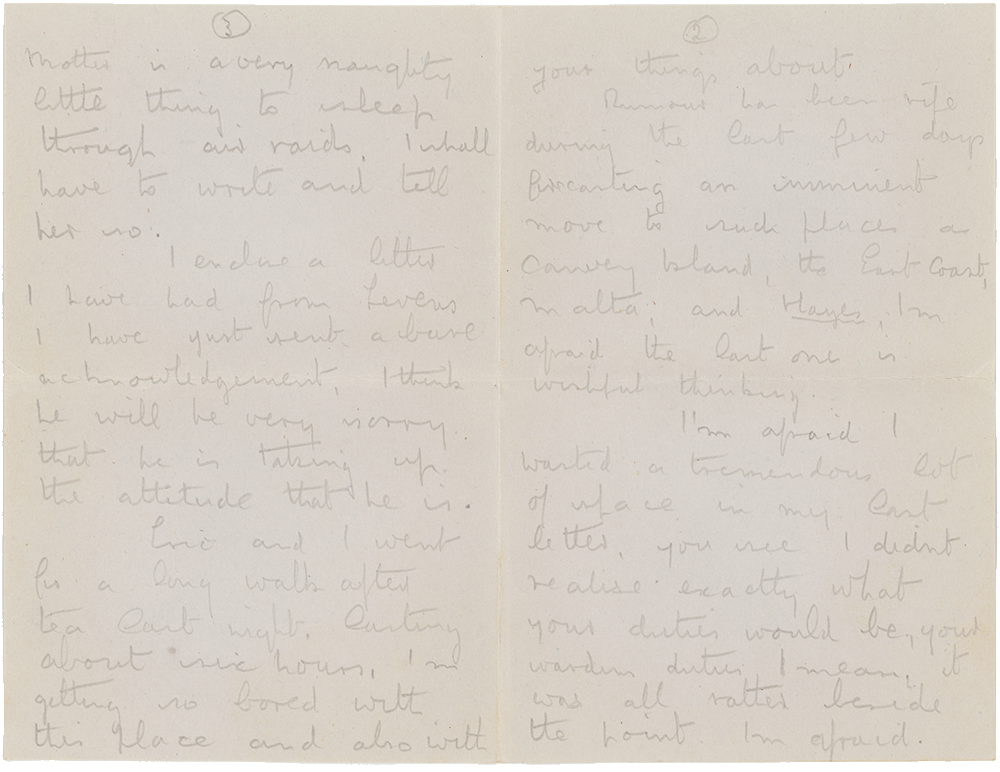 2
your things about.
Rumour has been rife
during the last few days
forecasting an imminent
move to such places as
Canvey Island, the East Coast,
Malta; and Hayes, I'm
afraid the last one is
wishful thinking.
I'm afraid I
wasted a tremendous lot
of space in my last
letter, you see I didnt
realise exactly what
your duties would be, your
wardens duties I mean, it
was all rather beside
the point I'm afraid.
3
Mother is a very naughty
little thing to sleep
through air raids, I shall
have to write and tell
her so.
I enclose a letter
I have had from Levens
I have just sent a bare
acknowledgement, I think
he will be very sorry
that he is taking up
the attitude that he is.
Eric and I went
for a long walk after
tea last night, lasting
about six hours, I'm
getting so bored with
this place and also with